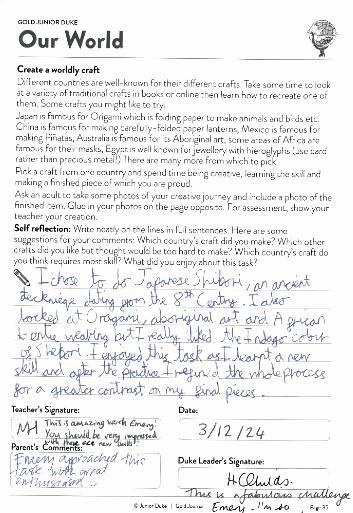 GOLD JUNIOR DUKE
Our World
Create a worldly craft
Different countries are well-known for their different crafts. Take some time to look
at a variety of traditional crafts in books or online then learn how to recreate one of
them. Some crafts you might like to try:
Japan is famous for Origami which is folding paper to make animals and birds etc.
China is famous for making carefully-folded paper lanterns, Mexico is famous for
making Piñatas, Australia is famous for its Aboriginal art, some areas of Africa are
famous for their masks, Egypt is well known for jewellery with hieroglyphs (use card
rather than precious metal!) There are many more from which to pick.
Pick a craft from one country and spend time being creative, learning the skill and
making a finished piece of which you are proud.
Ask an adult to take some photos of your creative journey and include a photo of the
finished item. Glue in your photos on the page opposite. For assessment, show your
teacher your creation.
Self reflection: Write neatly on the lines in full sentences. Here are some
suggestions for your comments: Which country's craft did you make? Which other
crafts did you like but thought would be too hard to make? Which country's craft do
you think requires most skill? What did you enjoy about this task?
I chose to do Japanese Shibori, an ancient
dating from the 8th Century. I also
looked at Oragami, aboriginal art and African
weaving but I really liked the Indago colour
of Shibori. I enjoyed this task as I learnt a new
skill and after the practice I the whole process
for a greater contrast on my final pieces.
Teacher's Signature:
Date:
MH This is amazing work Emeny!
You should be very impressed
with these new skills!
3/12/24
Parent's Comments:
Duke Leader's Signature:
approached this
task with great
enthusiasm
This is a fabulous challenge
I'm so
© Junior Duke | Gold Journal